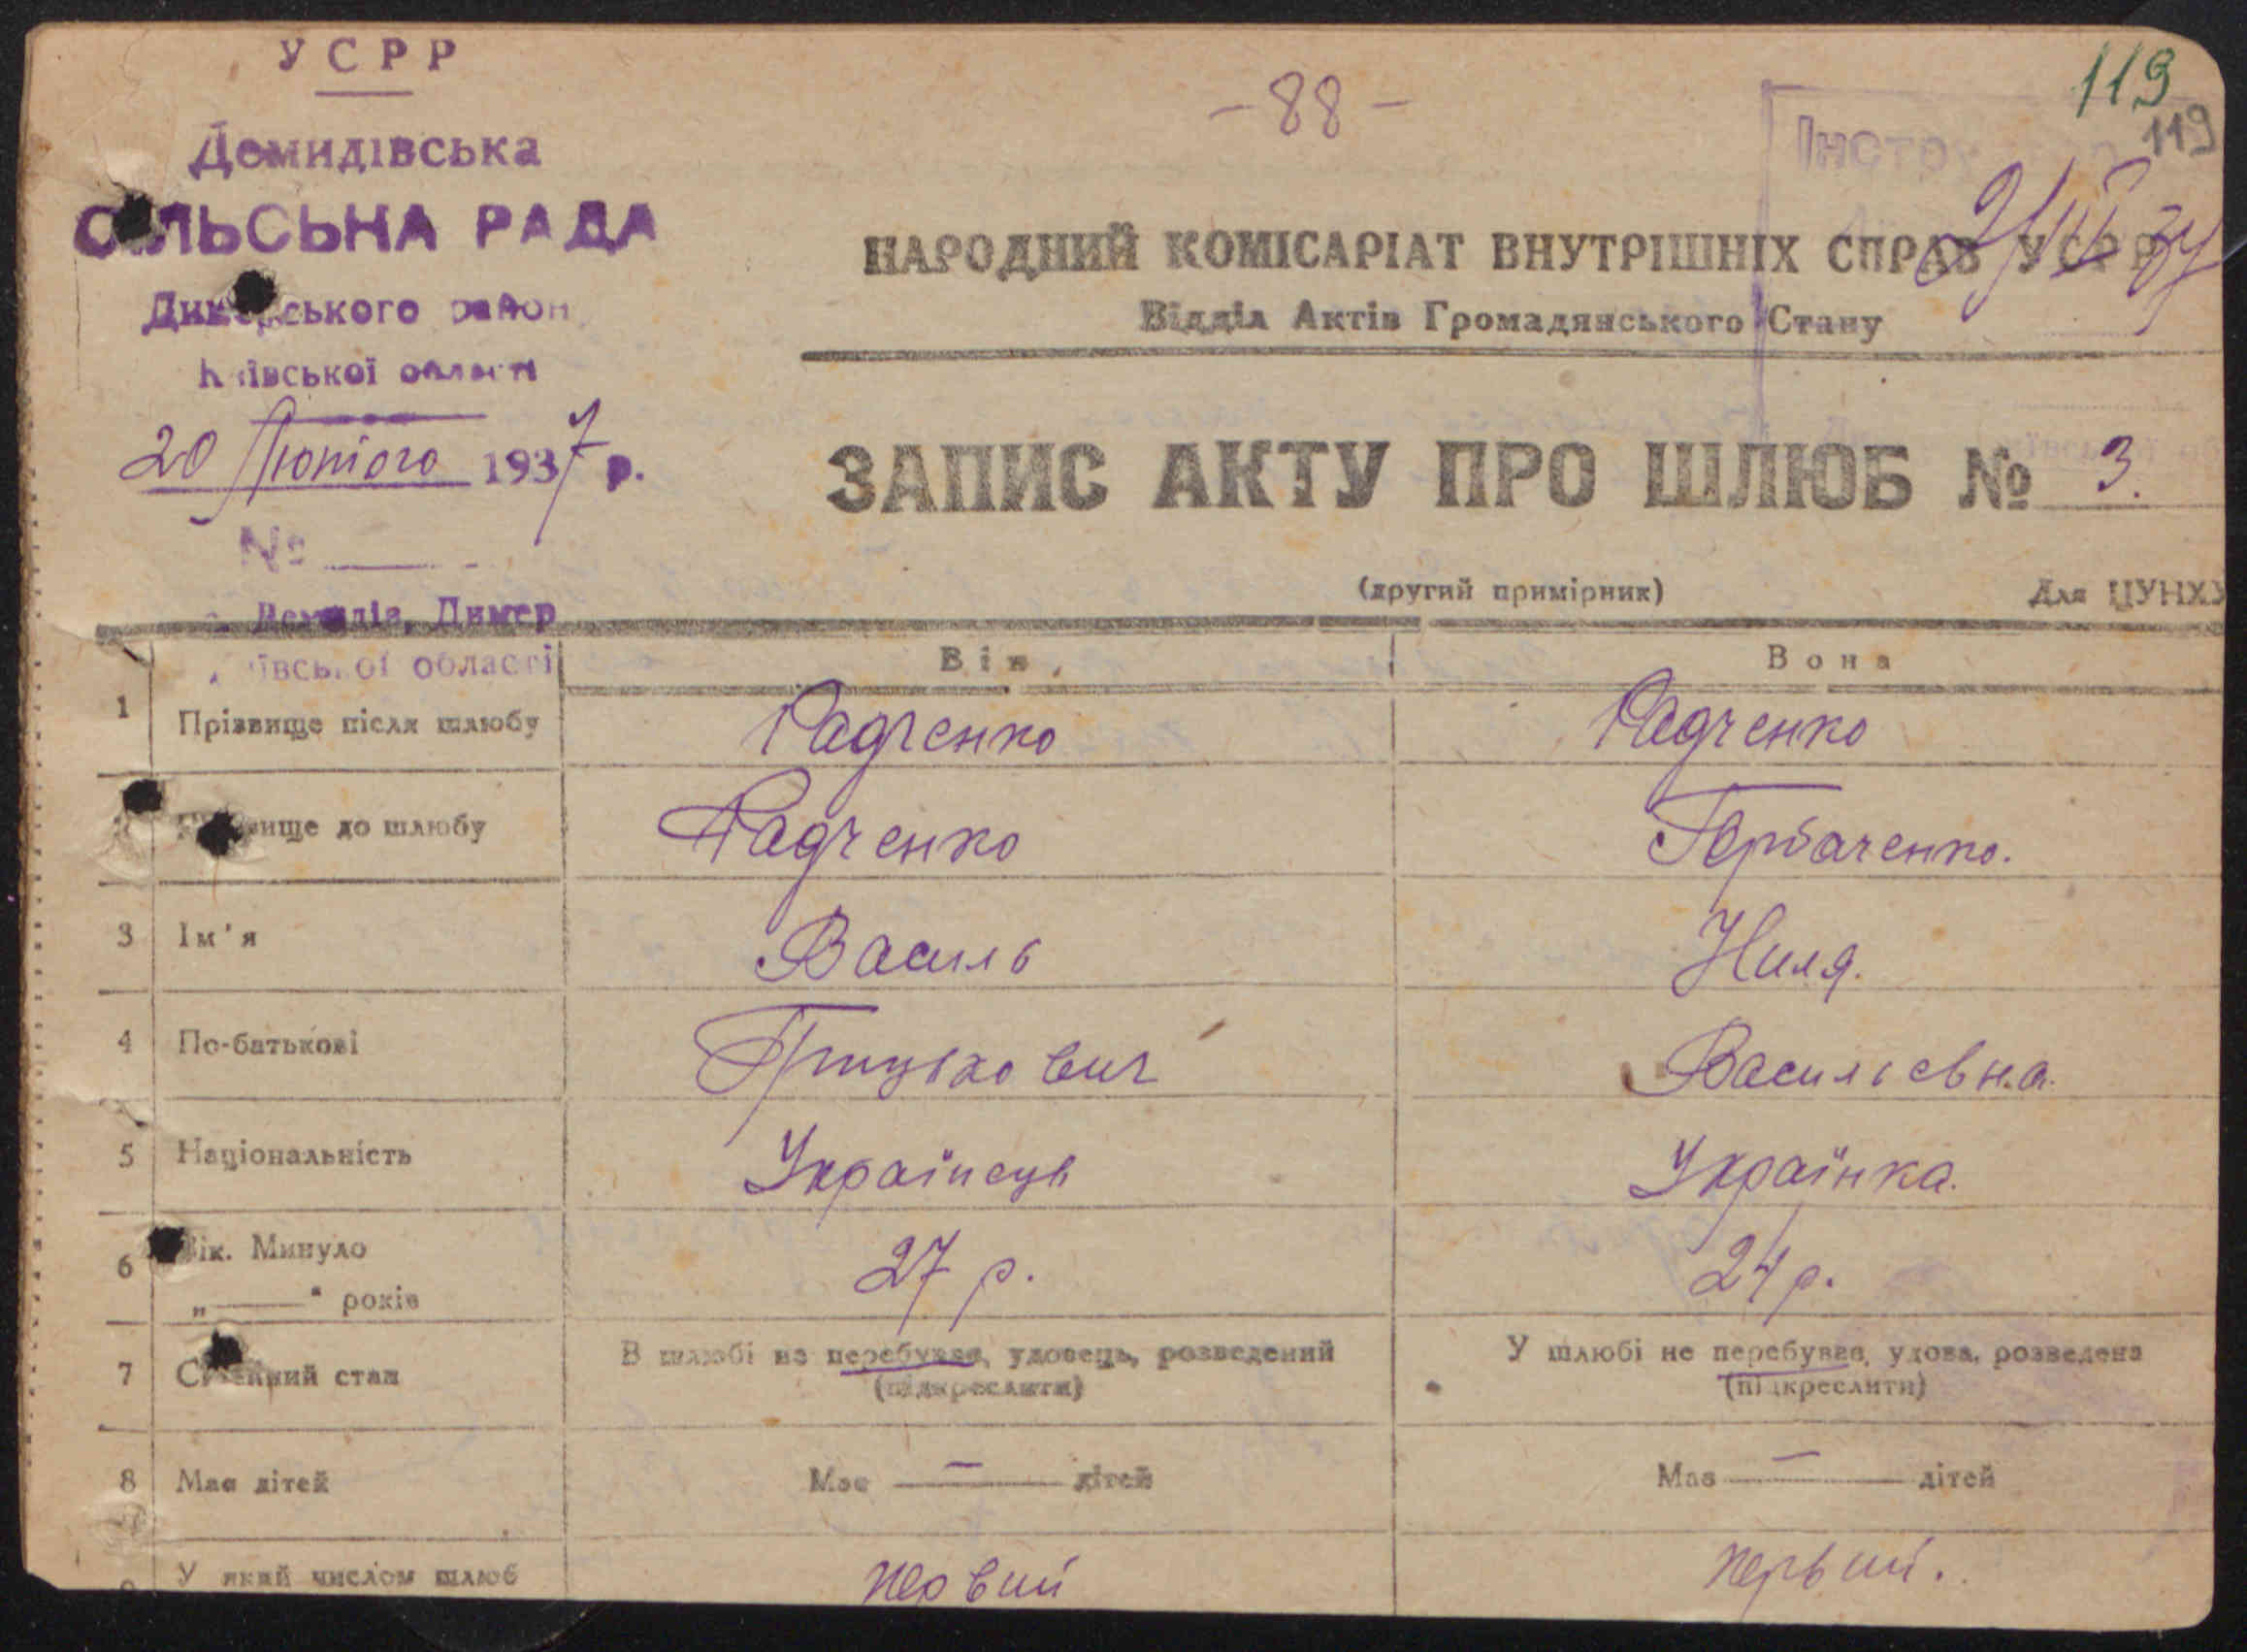 УСРР
Демидівська
СІЛЬСЬКА РАДА
Димерського район
Київської області
20 Лютого 1937 р.
№
с. Демидів, Димер
Київської області
- 88 -
119
119
Інстр
2/III 37
НАРОДНИЙ КОМІСАРІАТ ВНУТРІШНІХ СПРАВ УСРР
Відділ Актів Громадянського Стану
ЗАПИС АКТУ ПРО ШЛЮБ № 3.
(другий примірник) Для ЦУНХУ
Він Вона
1 Прізвище після шлюбу Радченко Радченко
Прізвище до шлюбу Радченко Горбаченко.
3 Ім'я Василь Ниля.
4 По-батькові Грицькович Васильевна.
5 Національність Українець Українка.
6 Вік. Минуло 27 р. 24 р.
„ — " років
7 Сімейний стан В шлюбі не перебував, удовець, розведений У шлюбі не перебував, удова, розведена
(підкреслити) (підкреслити)
8 Має дітей Має — дітей Має — дітей
9 У який числом шлюб первий первий.